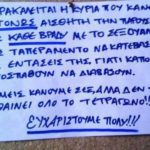 ΠΑΡΑΚΑΛΕΙΤΑΙ Η ΚΥΡΙΑ ΠΟΥ ΚΑΝΕΙ
ΕΝΤΟΝΩΣ ΑΙΣΘΗΤΗ ΤΗΝ ΠΑΡΟΥΣ
ΚΑΘΕ ΒΡΑΔΥ ΜΕ ΤΟ ΣΕΞΟΥΑΛ
ΤΑΠΕΡΑΜΕΝΤΟ ΝΑ ΚΑΤΕΒΑΣ
ΕΝΤΑΣΕΙΣ ΤΗΣ, ΓΙΑΤΙ ΚΑΠΟΙ
ΠΡΟΣΠΑΘΟΥΝ ΝΑ ΔΙΑΒΑΣΟΥΝ.
ΕΜΕΙΣ ΚΑΝΟΥΜΕ ΣΕΞ, ΑΛΛΑ ΔΕΝ ΤΟ
ΘΑΙΝΕΙ ΟΛΟ ΤΟ ΤΕΤΡΑΓΩΝΟ!!
ΕΥΧΑΡΙΣΤΟΥΜΕ ΠΟΛΥ!!!